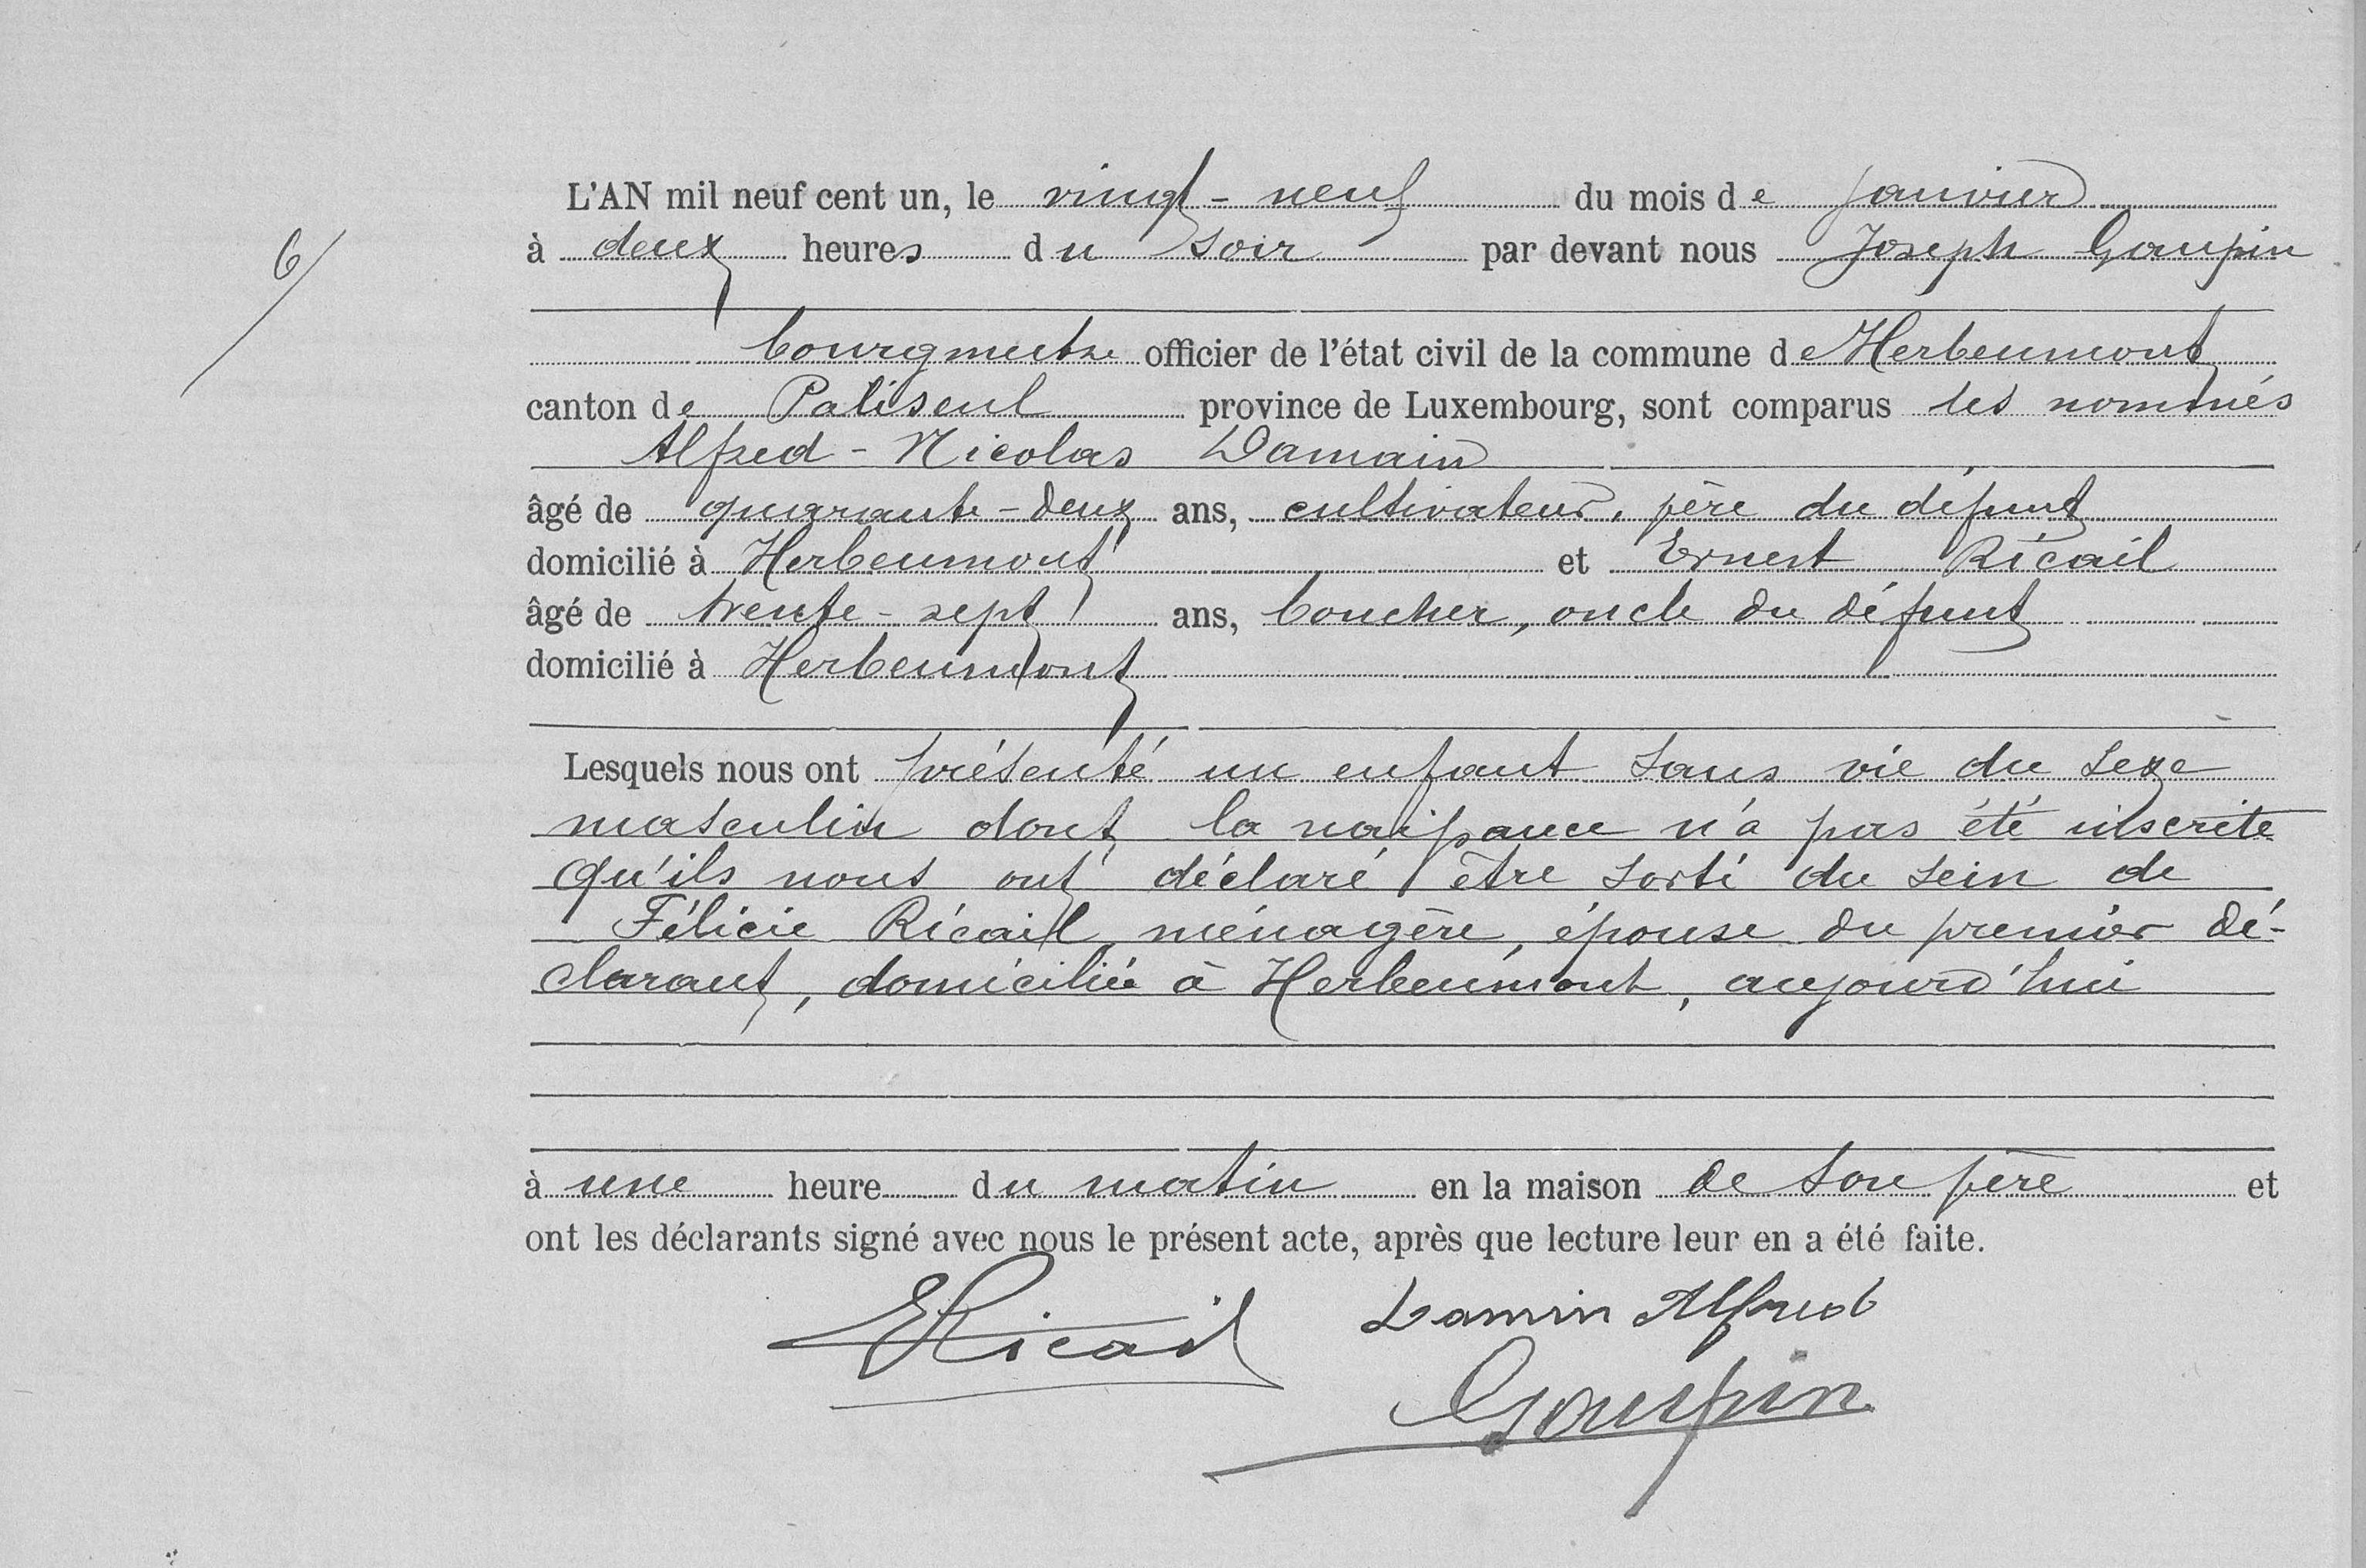 6/
L'AN mil neuf cent un, le vingt-neuf du mois de janvier
à deux heures du soir par devant nous Joseph Goupin
bourgmestre officier de l'état civil de la commune de Herbeumont
canton de Paliseul province de Luxembourg, sont comparus les nommés
Alfred-Nicolas Damain
âgé de quarante-deux ans, cultivateur, père du défunt
domicilié à Herbeumont et Ernest Ricail
âgé de trente-sept ans, boucher, oncle du défunt
domicilié à Herbeumont
Lesquels nous ont présenté un enfant sans vie du sexe
masculin dont la naissance n'a pas été inscrite
qu'ils nous ont déclaré être sorti du sein de
Félicie Ricail, ménagère, épouse du premier dé-
clarant, domiciliée à Herbeumont, aujourd'hui
à une heure du matin en la maison de son père et
ont les déclarants signé avec nous le présent acte, après que lecture leur en a été faite.
ERicail Damin Alfred
Goupin